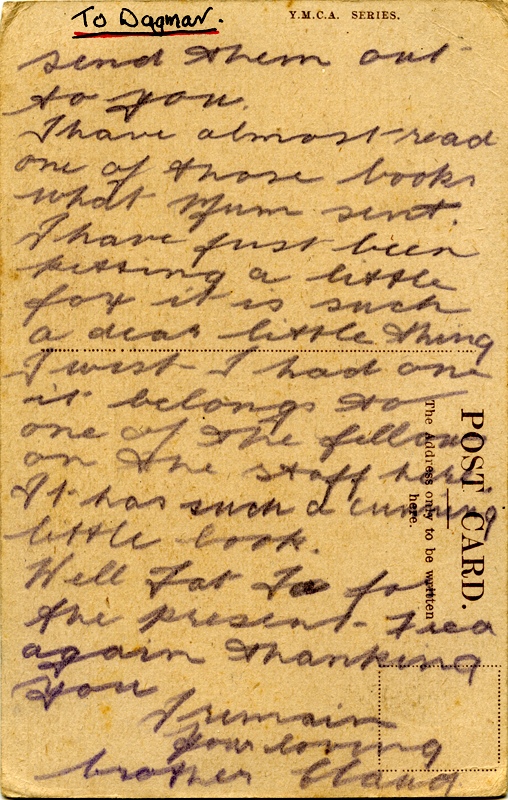 To Dagmar.
Y.M.C.A. SERIES.
send them out
to you.
I have almost read
one of those books
what Mum sent.
I have just been
petting a little
fox it is such
a dear little thing
I wist I had one
it belongs to
one of the fellows
on the staff here.
It has such a cunning
little look.
Well Tat Ta for
the present
again thanking
you
I remain
your loving
brother Claud
POST CARD.
The Address only to be written
here.